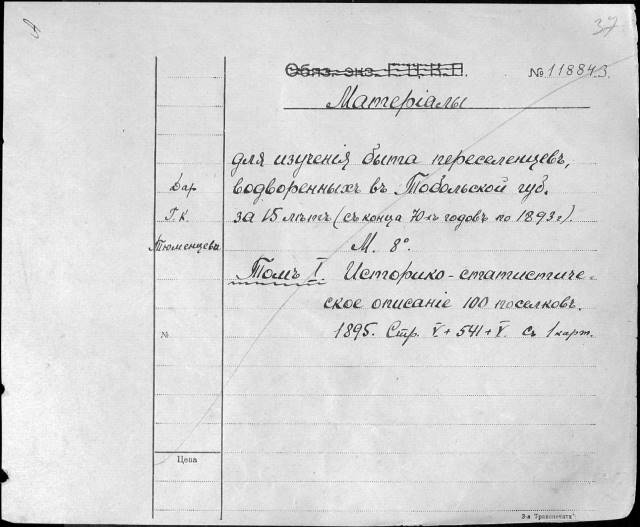 37
Обяз. экз. Г.Ц.К.П. № 118843.
Матеріалы
для изученія быта переселенцевъ,
Дар водворенныхъ въ Тобольской губ.
Г. К. за 15 лѣтъ (съ конца 70хъ годовъ по 1893 г.)
Тюменцева М. 8°.
Томъ I. Историко-статистиче-
ское описаніе 100 поселковъ.
№ 1895. Стр. V + 541 + V. съ 1 карт.
Цена